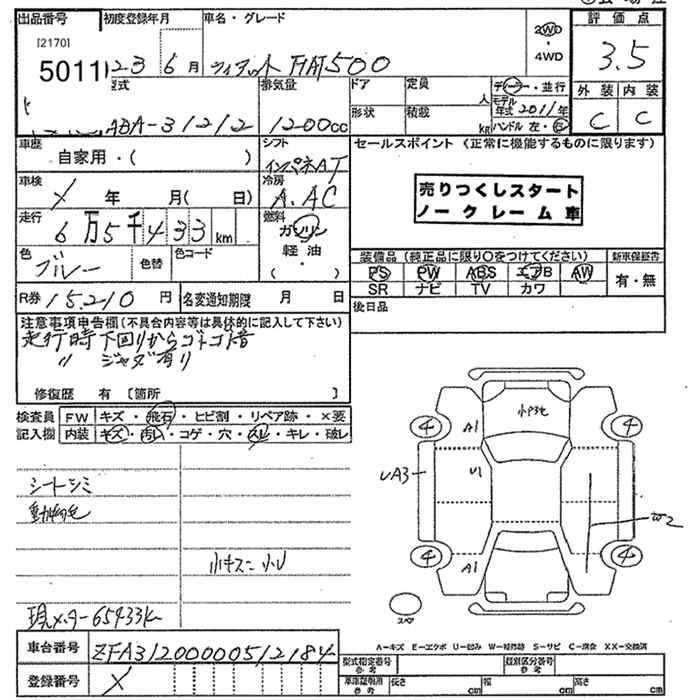 出品番号 初度登録年月 車名・グレード 評価点
[2170]
5011 23 6月 フィアット FIAT500 2WD・4WD 3.5
型式 排気量 ドア 定員 人 ディーラー・並行 外装 内装
ABA-31212 1200cc 形状 積載 kg モデル年式 2011年 C C
ハンドル 左・右
車歴 シフト セールスポイント (正常に機能するものに限ります)
自家用・( ) インパネAT
車検 冷房
X 年 月( 日) A.AC 売りつくしスタート
ノークレーム車
走行 燃料
6万5千433km ガソリン
軽油
・( )
色 色替 色コード 装備品 (純正品に限り○をつけてください) 新車保証書
ブルー PS PW ABS エアB AW 有・無
SR ナビ TV カワ
R券 15,210円 名変通知期限 月 日 後日品
注意事項申告欄(不具合内容等は具体的に記入して下さい)
走行時下回りからゴトゴト音
〃 ジャダ有り
修復歴 有 〔箇所 〕
検査員 FW キズ・飛石・ヒビ割・リペア跡・×要
記入欄 内装 キズ・汚れ・コゲ・穴・スレ・キレ・破レ
小P3ヒ
4 A1 4
UA3 U1
W2
4 A1 4
シートシミ
動物毛
小キズ 小U
現メーター65433k
スペア
A-キズ E-エクボ U-凹み W-補修跡 S-サビ C-腐食 XX-交換済
車台番号 ZFA31200000512184 型式指定番号 参考 類別区分番号 参考
登録番号 X 車庫証明用 参考 長さ cm 幅 cm 高さ cm